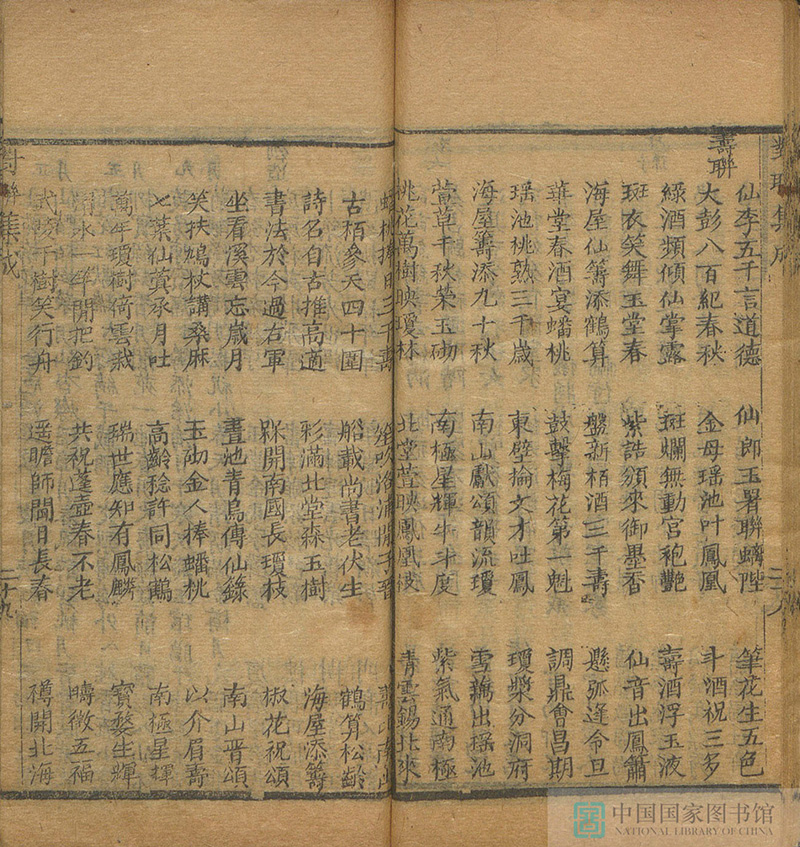 對聯集成
壽聯
仙李五千言道德 仙郎玉署聯螭陛 筆花生五色
大彭八百紀春秋 金母瑶池叶鳳凰 斗酒祝三多
綠酒頻傾仙掌露 斑斕無動宮袍艷 壽酒浮玉液
斑衣笑舞玉堂春 紫誥頒來御墨香 仙音出鳳簫
海屋仙籌添鶴算 盤新栢酒三千壽 懸弧逢令旦
華堂春酒宴蟠桃 鼓擊梅花第一魁 調鼎會昌期
瑶池桃熟三千歲 東壁掄文才吐鳳 瓊漿分洞府
海屋籌添九十秋 南山獻頌韻流瓊 雪藕出瑶池
萱草千秋榮玉砌 南極星輝牛斗度 紫氣通南極
桃花萬樹映瓊林 北堂萱映鳳凰 青雲錫北來
二十八
三千壽 吹 子晉 南山
古栢參天四十圍 船載尚書老伏生 鶴算松齡
詩名自古推高適 彩滿北堂森玉樹 海屋添籌
書法於今過右軍 開南國長瓊枝 椒花祝頌
坐看溪雲忘歲月 晝池青鳥傳仙錄 南山晋頌
笑扶鳩杖講桑麻 玉砌金人捧蟠桃 以介眉壽
七葉仙蓂承月吐 高齡稔許同松鶴 南極星揮
萬年瓊樹倚雲栽 瑞世應知有鳳麟 寳婺生輝
水一竿閒把釣 共祝蓬壺春不老 疇徵五福
千樹笑行舟 遥瞻師閫日長春 樽開北海
對聯集成
二十九
中国国家图书馆
NATIONAL LIBRARY OF CHINA